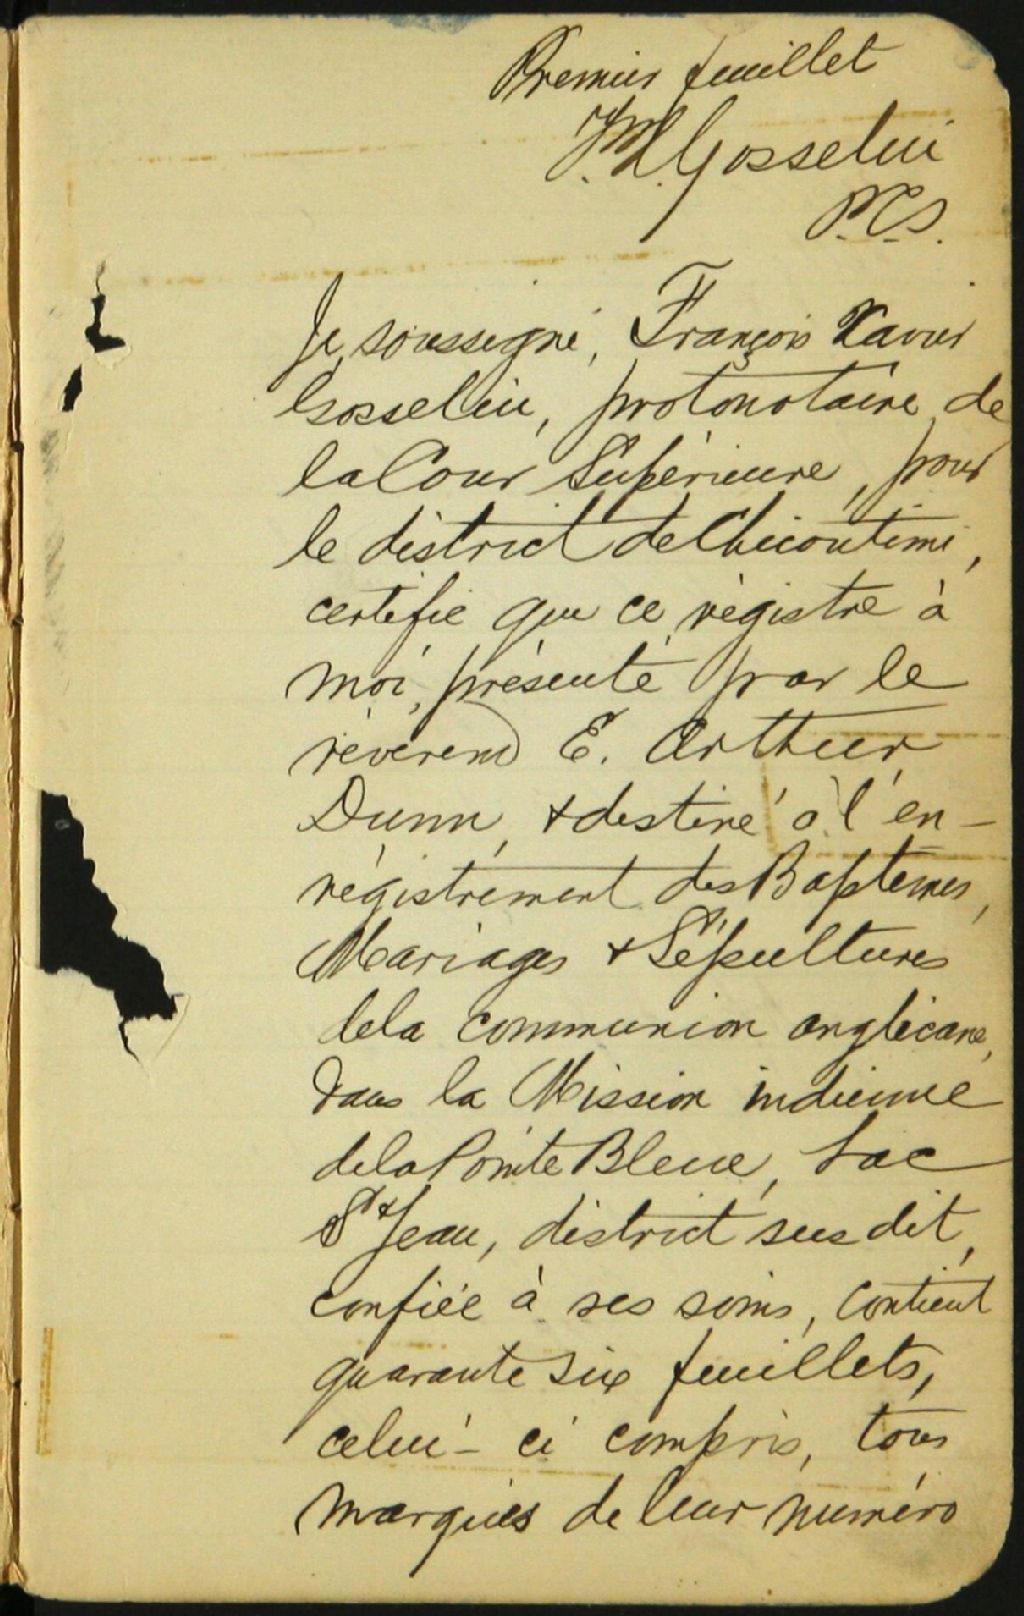 Premier feuillet
F. X. Gosselin
P.C.S.
Je, soussigné, François Xavier
Gosselin, protonotaire de
la Cour Supérieure, pour
le district de Chicoutimi,
certifie que ce régistre à
moi, présenté par le
révérend E. Arthur
Dunn, & destiné à l'en-
régistrement des Baptêmes,
Mariages & Sépultures
de la communion anglicane,
dans la Mission indienne
de la Pointe Bleue, Lac
St Jean, district sus dit,
confiée à ses soins, contient
quarante six feuillets,
celui-ci compris, tous
marqués de leur numéro